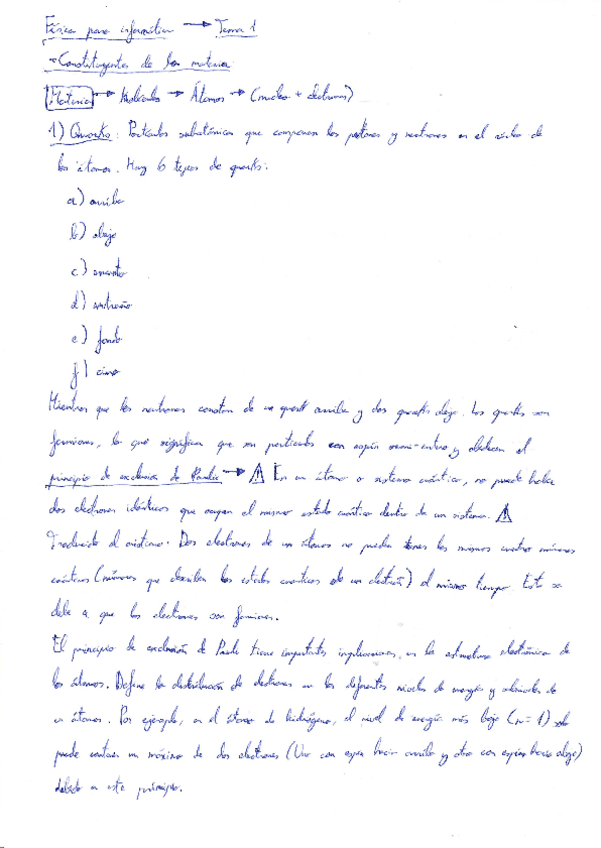 Física para informática → Tema 1
- Constituyentes de la materia
Materia → Moléculas → Átomos → (núcleo + electrones)
1) Quarks: Partículas subatómicas que componen los protones y neutrones en el núcleo de
los átomos. Hay 6 tipos de quarks:
a) arriba
b) abajo
c) encanto
d) extraño
e) fondo
f) cima
Mientras que los neutrones constan de un quark arriba y dos quarks abajo. Los quarks son
fermiones, lo que significa que son partículas con espín semi-entero y obedecen el
principio de exclusión de Pauli → ⚠ En un átomo o sistema cuántico, no puede haber
dos electrones idénticos que ocupen el mismo estado cuántico dentro de un sistema. ⚠
Traducido al cristiano: Dos electrones de un átomo no pueden tener los mismos cuatro números
cuánticos (números que describen los estados cuánticos de un electrón) al mismo tiempo. Esto se
debe a que los electrones son fermiones.
El principio de exclusión de Pauli tiene importantes implicaciones en la estructura electrónica de
los átomos. Define la distribución de electrones en los diferentes niveles de energía y orbitales de
un átomo. Por ejemplo, en el átomo de hidrógeno, el nivel de energía más bajo (n=1) solo
puede contener un máximo de dos electrones (Uno con espín hacia arriba y otro con espín hacia abajo)
debido a este principio.